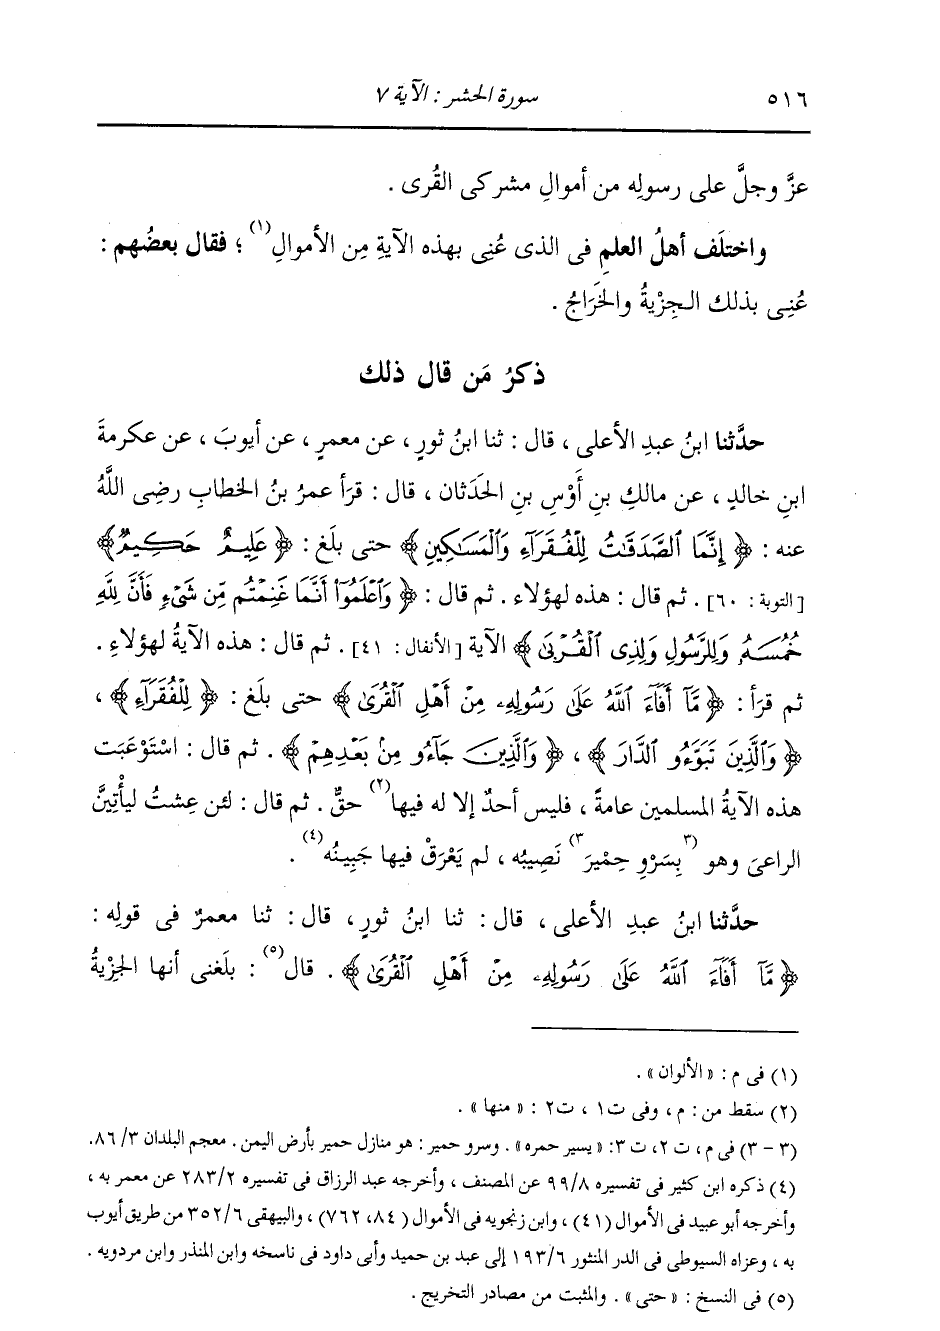 ٥١٦ سورة الحشر : الآية ٧
عزَّ وجلَّ على رسولِه من أموالِ مشركى القُرى .
واختلَف أهلُ العلمِ فى الذى عُنِى بهذه الآيةِ مِن الأموالِ(١) ؛ فقال بعضُهم :
عُنِى بذلك الجِزْيةُ والخَرَاجُ .
ذكرُ مَن قال ذلك
حدَّثنا ابنُ عبدِ الأعلى ، قال : ثنا ابنُ ثورٍ ، عن معمرٍ ، عن أيوبَ ، عن عكرمةَ
ابنِ خالدٍ ، عن مالكِ بنِ أَوْسِ بنِ الحَدَثانِ ، قال : قرَأ عمرُ بنُ الخطابِ رضِى اللَّهُ
عنه : ﴿ إِنَّمَا ٱلصَّدَقَٰتُ لِلْفُقَرَآءِ وَٱلْمَسَٰكِينِ ﴾ حتى بلَغ : ﴿ عَلِيمٌ حَكِيمٌ ﴾
[التوبة : ٦٠] . ثم قال : هذه لهؤلاء . ثم قال : ﴿ وَٱعْلَمُوٓا۟ أَنَّمَا غَنِمْتُم مِّن شَىْءٍ فَأَنَّ لِلَّهِ
خُمُسَهُۥ وَلِلرَّسُولِ وَلِذِى ٱلْقُرْبَىٰ ﴾ الآية [الأنفال : ٤١] . ثم قال : هذه الآيةُ لهؤلاءِ .
ثم قرَأ : ﴿ مَّآ أَفَآءَ ٱللَّهُ عَلَىٰ رَسُولِهِۦ مِنْ أَهْلِ ٱلْقُرَىٰ ﴾ حتى بلَغ : ﴿ لِلْفُقَرَآءِ ﴾ ،
﴿ وَٱلَّذِينَ تَبَوَّءُو ٱلدَّارَ ﴾ ، ﴿ وَٱلَّذِينَ جَآءُو مِنۢ بَعْدِهِمْ ﴾ . ثم قال : اسْتَوْعَبَت
هذه الآيةُ المسلمين عامةً ، فليس أحدٌ إلا له فيها(٢) حقٌّ . ثم قال : لئن عِشتُ ليأْتِيَنَّ
الراعىَ وهو (٣بِسَرْوِ حِمْيَرَ٣) نَصِيبُه ، لم يَعْرَقْ فيها جَبِينُه(٤) .
حدَّثنا ابنُ عبدِ الأعلى ، قال : ثنا ابنُ ثورٍ ، قال : ثنا معمرٌ فى قولِه :
﴿ مَّآ أَفَآءَ ٱللَّهُ عَلَىٰ رَسُولِهِۦ مِنْ أَهْلِ ٱلْقُرَىٰ ﴾ . قال(٥) : بلَغنى أنها الجِزْيةُ
(١) فى م : « الألوان » .
(٢) سقط من : م ، وفى ت١ ، ت٢ : « منها » .
(٣ - ٣) فى م ، ت ٢، ت ٣: « يسير حمره » . وسرو حمير : هو منازل حمير بأرض اليمن . معجم البلدان ٣/ ٨٦.
(٤) ذكره ابن كثير فى تفسيره ٩٩/٨ عن المصنف ، وأخرجه عبد الرزاق فى تفسيره ٢٨٣/٢ عن معمر به ،
وأخرجه أبو عبيد فى الأموال (٤١) ، وابن زنجويه فى الأموال ( ٨٤، ٧٦٢) ، والبيهقى ٣٥٢/٦ من طريق أيوب
به ، وعزاه السيوطى فى الدر المنثور ١٩٣/٦ إلى عبد بن حميد وأبى داود فى ناسخه وابن المنذر وابن مردويه .
(٥) فى النسخ : « حتى » . والمثبت من مصادر التخريج .